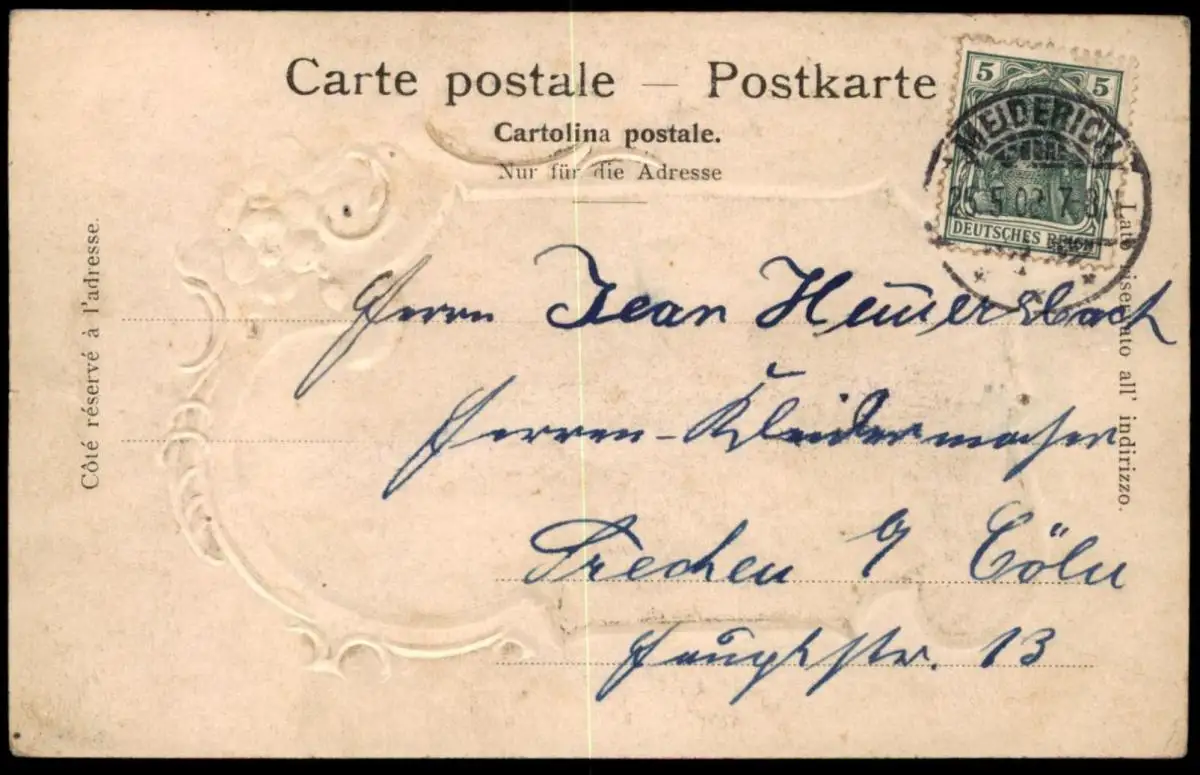 Carte postale — Postkarte
Cartolina postale.
Nur für die Adresse
Côté réservé à l'adresse.
Lato riservato all' indirizzo.
5 5
DEUTSCHES REICH
MEIDERICH
Herrn Jean Heuersbach
Herren-Kleidermacher
Frechen b/ Cöln
Hauptstr. 13